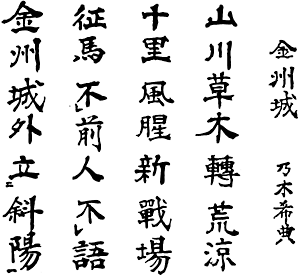 金州城 乃木希典
山川草木轉荒涼
十里風腥新戰場
征馬不前人不語
金州城外立斜陽